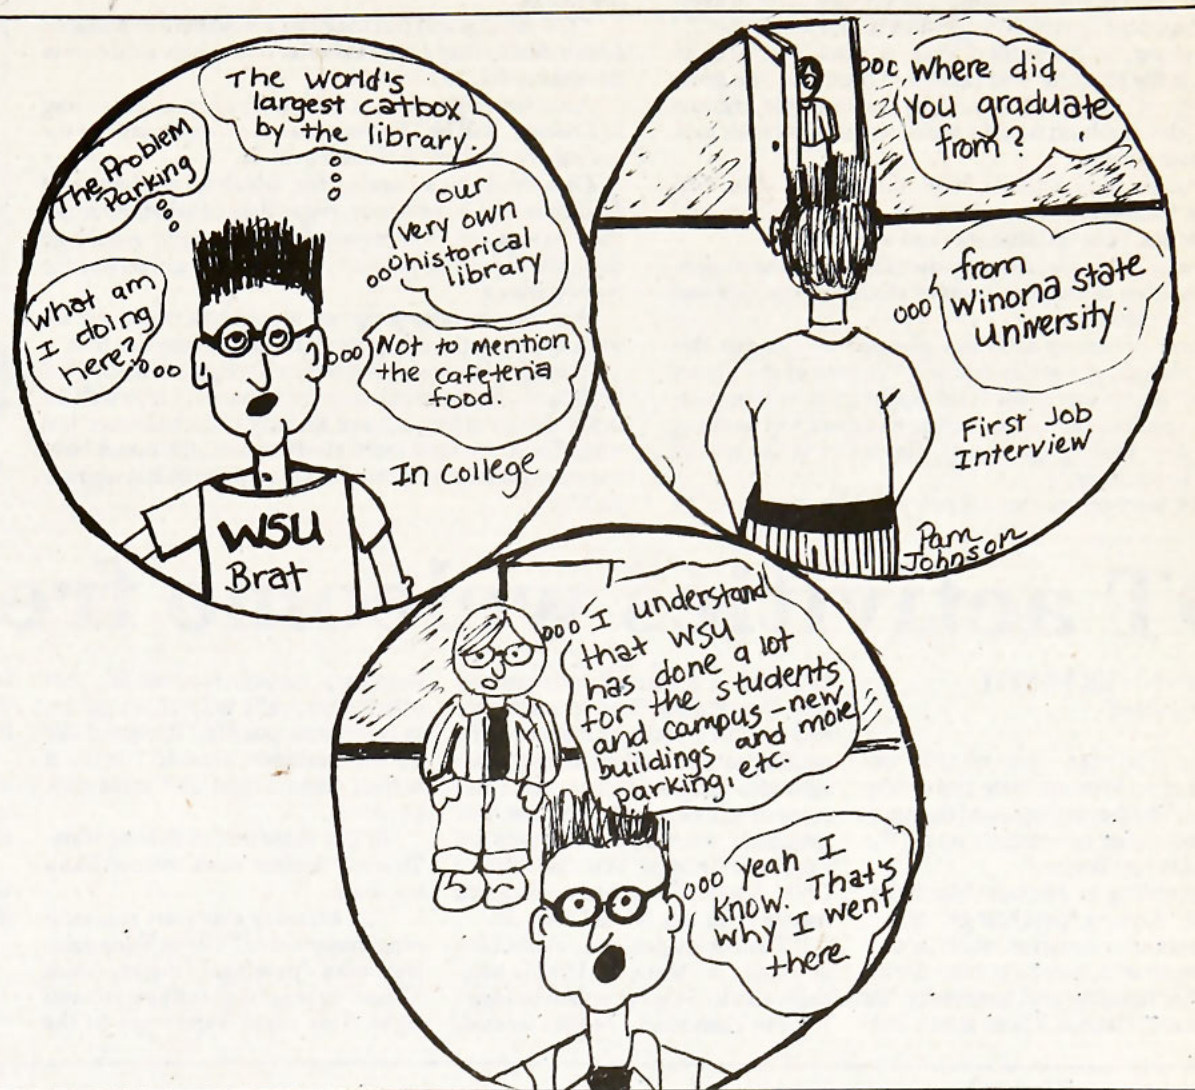 The World's
largest catbox
by the library.
The Problem
Parking
our
very own
historical
library
What am
I doing
here?
Not to mention
the cafeteria
food.
In College
WSU
Brat
Where did
you graduate
from?
from
Winona State
University.
First Job
Interview
Pam
Johnson
I understand
that WSU
has done a lot
for the students
and campus - new
buildings and more
parking, etc.
yeah I
know. That's
why I went
there